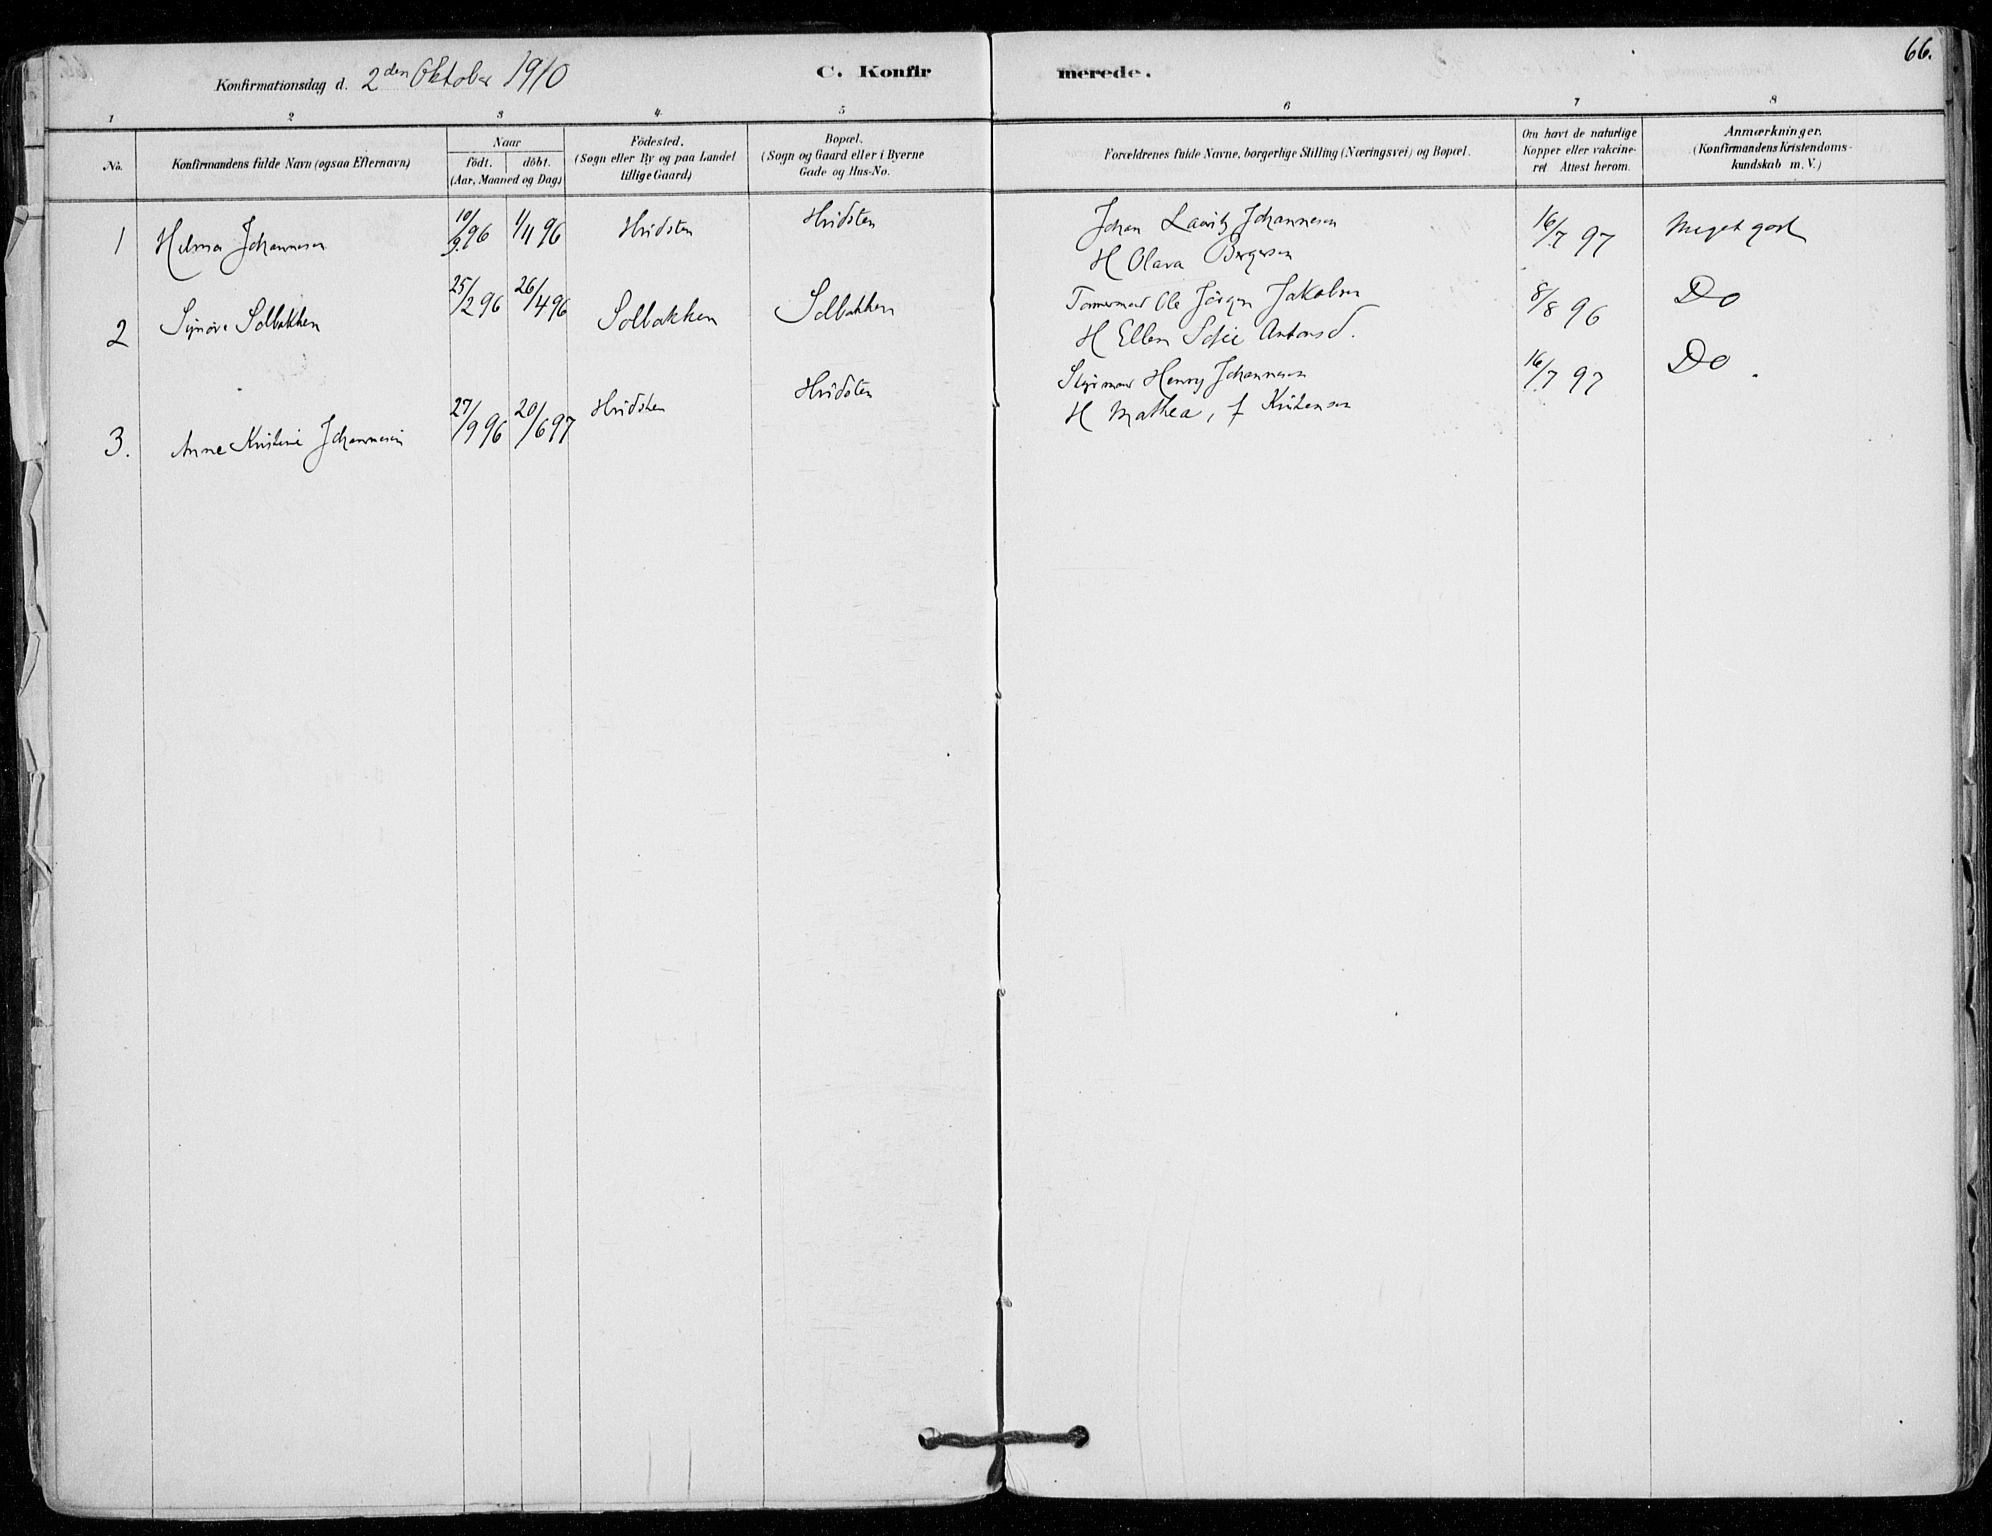 66.
Konfirmationsdag d. 2den Oktober 1910
C. Konfirmerede.
1 2 3 4 5 6 7 8
No.
Konfirmandens fulde Navn (ogsaa Efternavn)
Naar
födt. döbt.
(Aar, Maaned og Dag)
Födested.
(Sogn eller By og paa Landet
tillige Gaard)
Bopæl.
(Sogn og Gaard eller i Byerne
Gade og Hus-No.
Forældrenes fulde Navne, borgerlige Stilling (Næringsvei) og Bopæl.
Om havt de naturlige
Kopper eller vakcine-
ret Attest herom.
Anmærkninger.
(Konfirmandens Kristendoms-
kundskab m. V.)
1 Helma Johannesen 10/9 96 1/11 96 Hvidsten Hvidsten Johan Lauritz Johannesen 16/7 97 Meget godt
H Olava Bergersen
2 Signóra Solbakken 25/2 96 26/4 96 Solbakken Solbakken Tømermand Ole Jörgen Jakobsen 8/8 96 Do
H Ellen Sofie Antonsd.
3. Anne Kristine Johannesen 27/9 96 20/6 97 Hvidsten Hvidsten Styrmand Henry Johannesen 16/7 97 Do.
H Mathea, f Kristensen